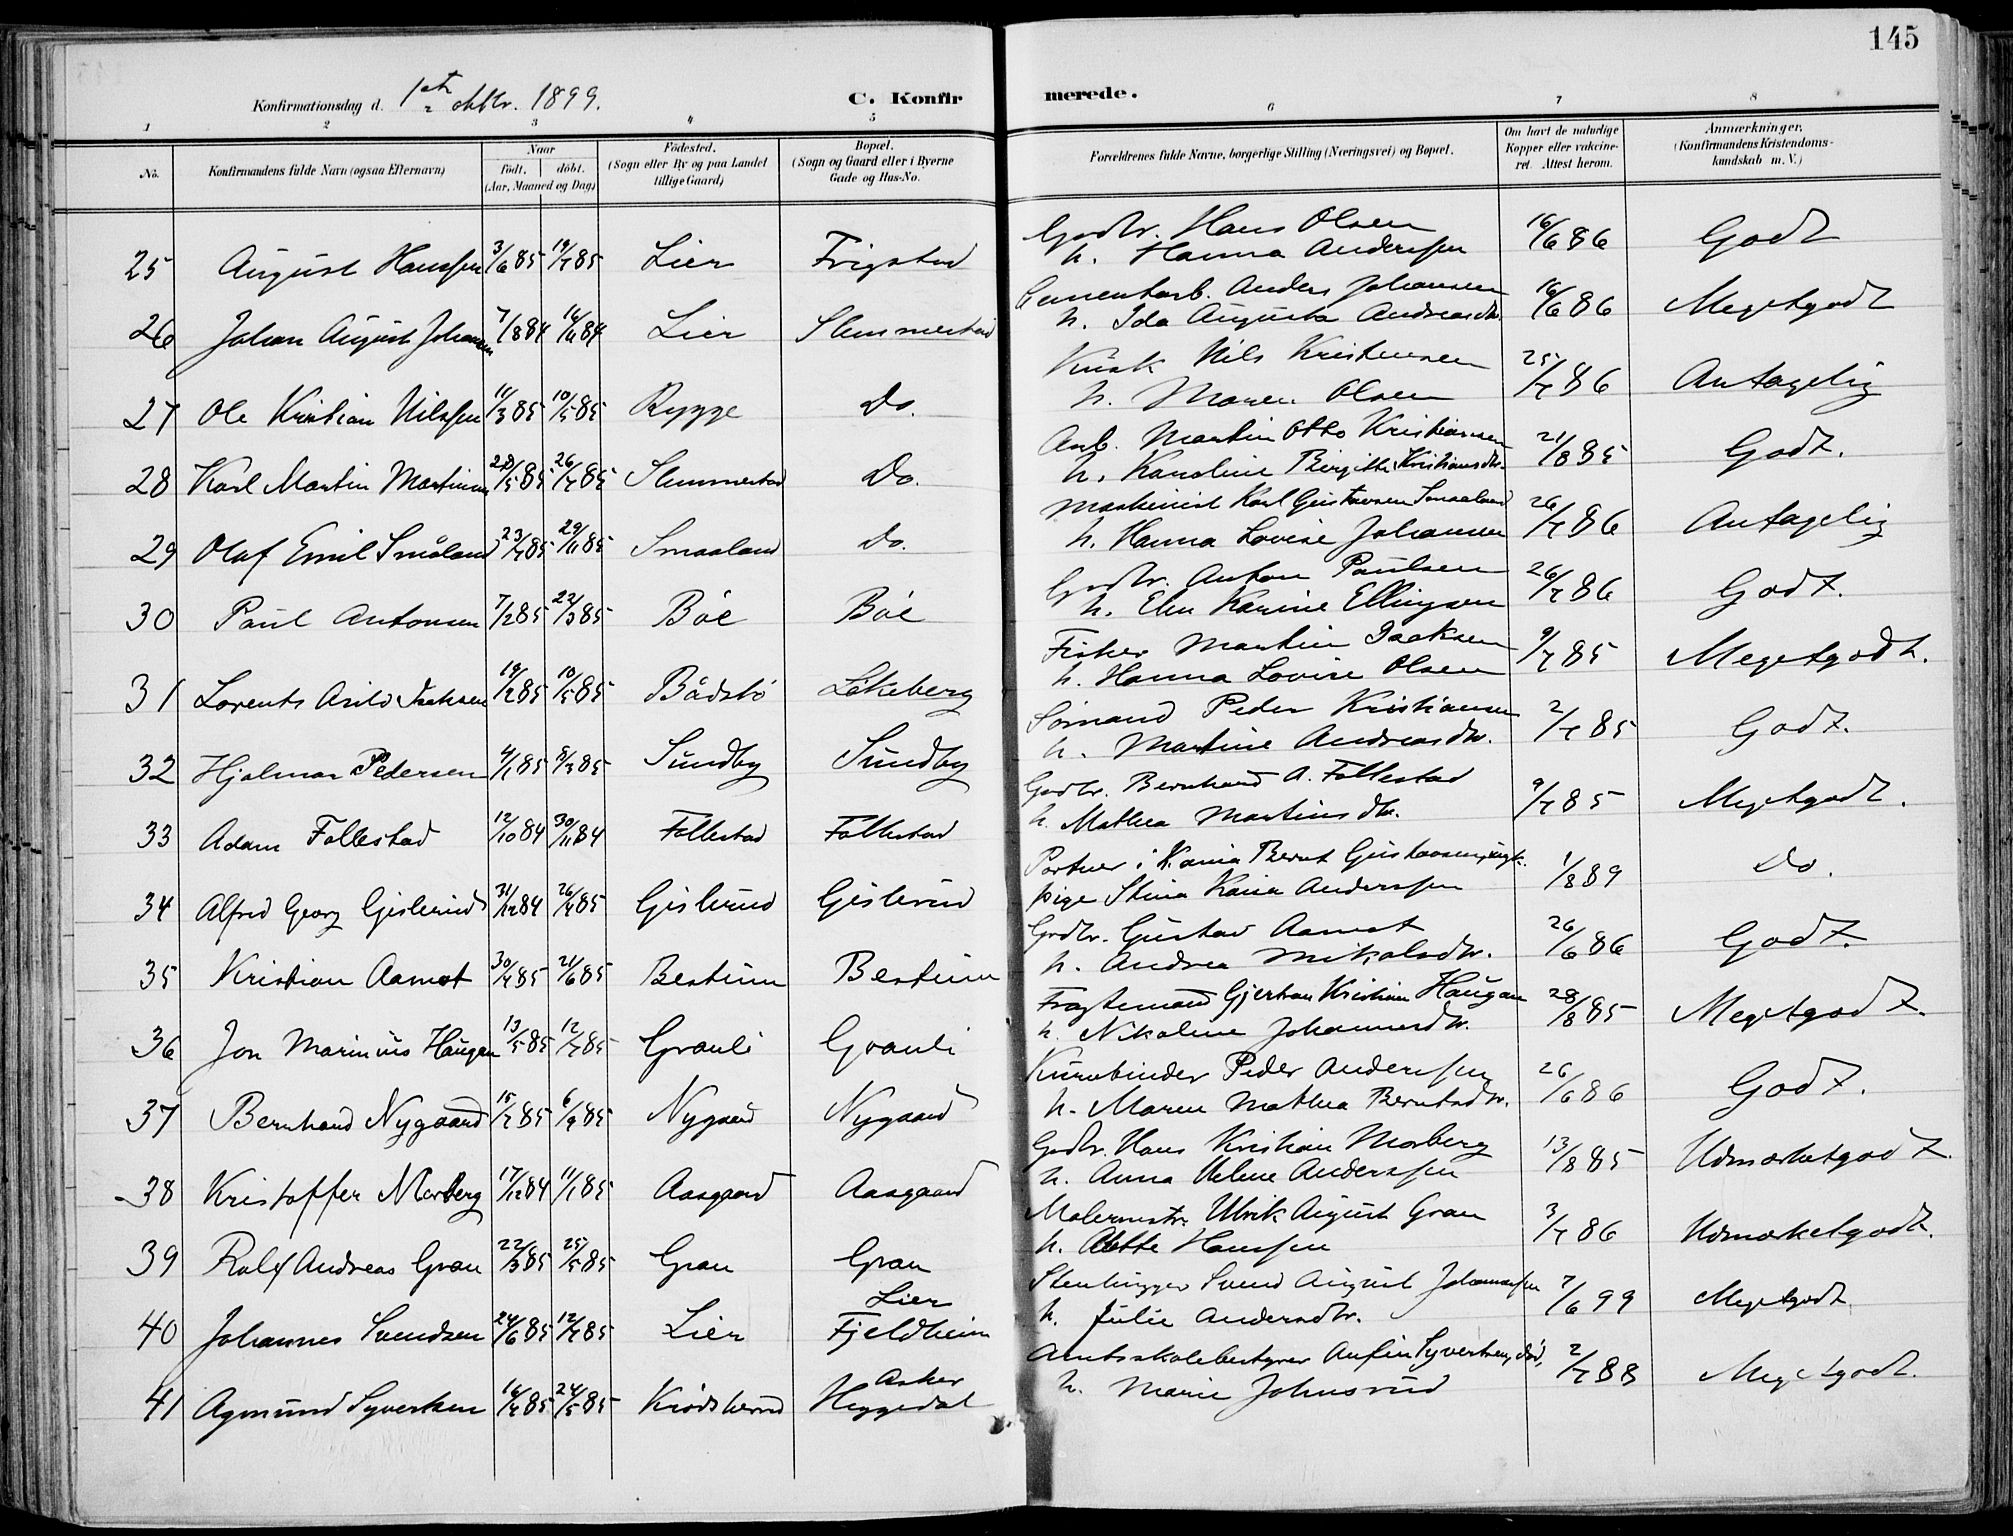 145
Konfirmationsdag d. 1ste oktbr. 1899.
C. Konfirmerede.
1 2 3 4 5 6 7 8
No. Konfirmandens fulde Navn (ogsaa Efternavn)
Naar
født. døbt.
(Aar, Maaned og Dag)
Fødested.
(Sogn eller By og paa Landet
tillige Gaard)
Bopæl.
(Sogn og Gaard eller i Byerne
Gade og Hus-No.
Forældrenes fulde Navne, borgerlige Stilling (Næringsvei) og Bopæl.
Om havt de naturlige
Kopper eller vakcine-
ret. Attest herom.
Anmærkninger.
(Konfirmandens Kristendoms-
kundskab m. V.)
25 August Hanssen 3/6 85 19/7 85 Lier Frigstad Gaardbr. Hans Olsen
h. Hanna Anderssen 16/6 86 Godt
26 Johan August Johansen 7/8 84 84 Lier Slemmestad Cementarb. Anders Johansen
h. Ida Augusta Andreasdtr. 16/6 86 Megetgodt
27 Ole Kristian Nilssen 11/3 85 10/5 85 Rygge Do. Kusk Nils Kristensen
h. Maren Olsen 25/7 86 Antagelig
28 Karl Martin Martinsen 28/5 85 26/7 85 Slemmestad Do. Arb. Martin Otto Kristiansen
h. Karoline Birgitte Kristiansdtr. 21/8 85 Godt.
29 Olaf Emil Småland 23/7 85 29/11 85 Smaaland Do. Maskinist Karl Gustavsen Smaaland
h. Hanna Lovise Johansen 26/7 86 Antagelig
30 Paul Antonsen 7/2 85 22/3 85 Böe Böe Gaardbr. Anton Paulsen
h. Elen Karine Ellingsen 26/7 86 Godt.
31 Lorents Arild Isaksen 19/2 85 10/5 85 Bådstö Lökeberg Fisker Martin Isaksen
h. Hanna Lovise Olsen 9/7 85 Megetgodt.
32 Hjalmar Pedersen 4/1 85 8/3 85 Sundby Sundby Sömand Peder Kristiansen
h. Martine Andreasdtr. 2/7 85 Godt.
33 Adam Follestad 12/10 84 30/11 84 Follestad Follestad Gaardbr. Bernhard A. Follestad
h. Mathea Martinsdtr. 9/7 85 Megetgodt.
34 Alfred Georg Gislerud 31/12 84 26/4 85 Gislerud Gislerud Portner i K.ania Bernt Gustavsen, ugk.
pige Stina Kaisa Anderssen 1/8 89 Do.
35 Kristian Aamot 30/4 85 21/6 85 Bestum Bestum Grdbr. Gustav Aamot
h. Andrea Mikalsdtr. 26/6 86 Godt.
36 Jon Marinius Haugen 13/5 85 12/7 85 Granli Granli Fragtemand Gjertsen Kristian Haugan
h. Nikoline Johannesdtr. 28/8 85 Megetgodt.
37 Bernhard Nygaard 15/7 85 6/9 85 Nygaard Nygaard Kurvbinder Peder Anderssen
h. Maren Mathea Berntsdtr. 26/6 86 Godt.
38 Kristoffer Morberg 17/12 84 11/1 85 Aasgaard Aasgaard Gaardbr. Hans Kristian Morberg
h. Anna Helene Anderssen 13/8 85 Udmærketgodt.
39 Rolf Andreas Gran 22/3 85 25/5 85 Gran Gran Malermstr. Ulrik August Gran
h. Alette Hanssen 3/7 86 Udmærketgodt.
40 Johannes Svendsen 24/6 85 12/7 85 Lier Lier
Fjeldheim Stenhugger Svend August Johannessen
h. Julie Andersdtr. 7/6 99 Megetgodt
41 Agmund Syvertsen 16/4 85 24/5 85 Krödsherred Asker
Heggedal Amtsskolebestyrer Anfin Syvertsen, död,
h. Marie Johnsrud 2/7 88 Megetgodt.